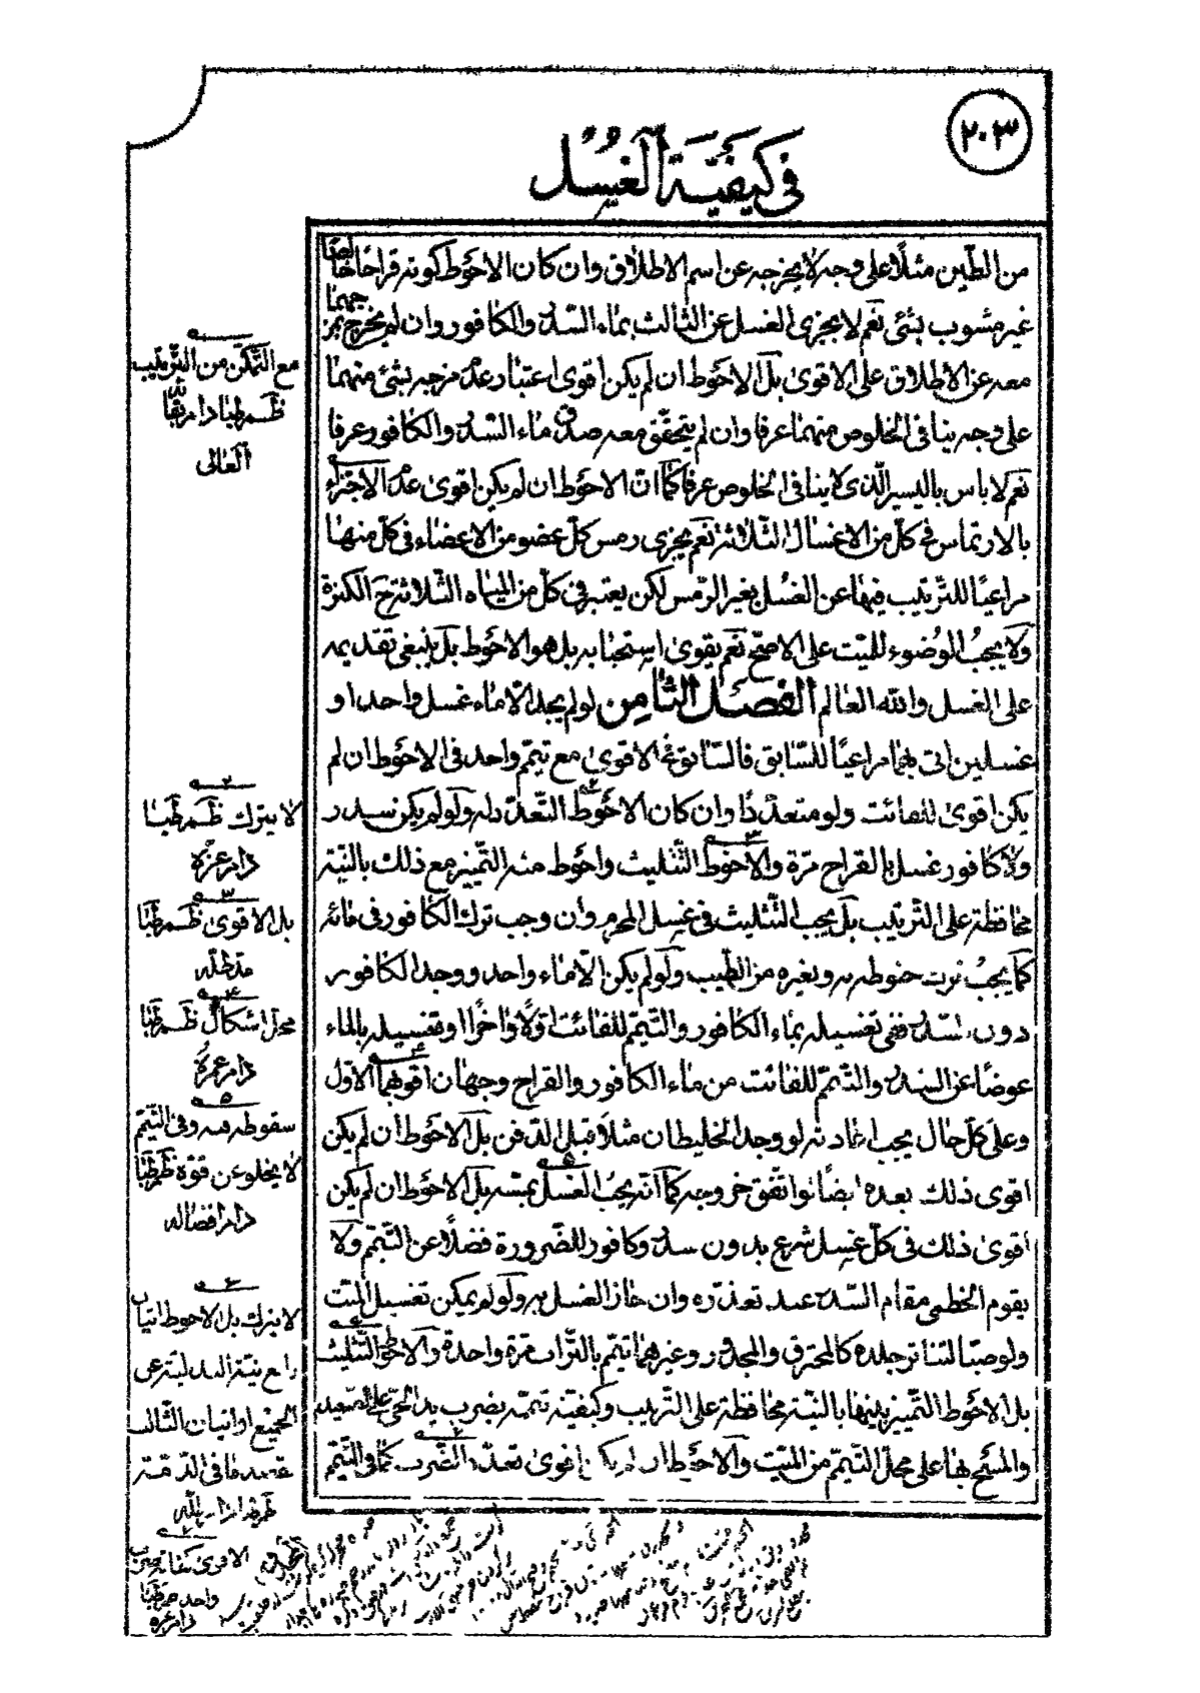 ٢٠٣
في كيفية الغسل
من الطين مثلا على وجه لا يخرجه عن اسم الاطلاق وان كان الاحوط كونه قراحا خالصا
غير مشوب بشئ نعم لا يجزى الغسل عن الثالث بماء السدر والكافور وان لم يخرج بمزجهما
معه عن الاطلاق على الاقوى بل الاحوط ان لم يكن اقوى اعتبار عدم مزجه بشئ منهما
على وجه ينافى الخلوص منهما عرفا وان لم يتحقق معه صدق ماء السدر والكافور عرفا
نعم لا باس باليسير الذى لا ينافى الخلوص عرفا كما ان الاحوط ان لم يكن اقوى عدم الاجتزاء
بالارتماس في كل من الاغسال الثلاثة نعم يجزى رمس كل عضو من الاعضاء في كل منها
مراعيا للترتيب فيها عن الغسل بغير الرمس لكن يعتبر في كل من المياه الثلاثة ح الكثرة
ولا يجب الوضوء للميت على الاصح نعم يقوى استحبابه بل هو الاحوط بل ينبغى تقديمه
على الغسل والله العالم الفصل الثامن لو لم يجد الا ماء غسل واحد او
غسلين اتى بهما مراعيا للسابق فالسابق في الاقوى مع تيمم واحد في الاحوط ان لم
يكن اقوى للفائت ولو متعددا وان كان الاحوط التعدد له ولو لم يكن سدر
ولا كافور غسل بالقراح مرة والاحوط التثليث واحوط منه التمييز مع ذلك بالنية
محافظة على الترتيب بل يجب التثليث في غسل المحرم وان وجب ترك الكافور في مائه
كما يجب ترك حنوطه به وبغيره من الطيب ولو لم يكن الا ماء واحد ووجد الكافور
دون السدر ففى تغسيله بماء الكافور والتيمم للفائت اولا واخرا او تغسيله بالماء
عوضا عن السدر والتيمم للفائت من ماء الكافور والقراح وجهان اقوىهما الاول
وعلى كل حال يجب اعادته لو وجد الخليطان مثلا قبل الدفن بل الاحوط ان لم يكن
اقوى ذلك بعده ايضا لو اتفق خروجه كما انه يجب الغسل بمسه بل الاحوط ان لم يكن
اقوى ذلك في كل غسل شرع بدون سدر وكافور للضرورة فضلا عن التيمم ولا
يقوم الخطمى مقام السدر عند تعذره وان جاز الغسل به ولو لم يمكن تغسيل الميت
ولو صبا لتناثر جلده كالمحترق والمجدور وغيرهما تيمم بالتراب مرة واحدة والاحوط التثليث
بل الاحوط التمييز بينها بالنية محافظة على الترتيب وكيفيته تيممه بضرب يد الحي على الصعيد
والمسح بها على محل التيمم من الميت والاحوط ان لم يكن اقوى تعدد الضرب كما في التيمم
مع التمكن من الترتيب
ظم طبا دام بقائه
العالى
٢
لا يترك ظم طبا
دام عزه
٣
بل الاقوى ظم طبا
مد ظله
٤
محل اشكال ظم طبا
دام عزه
٥
سقوطه منه وفى التيمم
لا يخلو عن قوة ظم طبا
دام افضاله
٦
لا يترك بل الاحوط اتيان
رابع بنية البدلية عن
الجميع او اتيان الثالث
بقصد ما في الذمة
٧
الاقوى كفاية ضرب
واحد ظم طبا
دام عزه